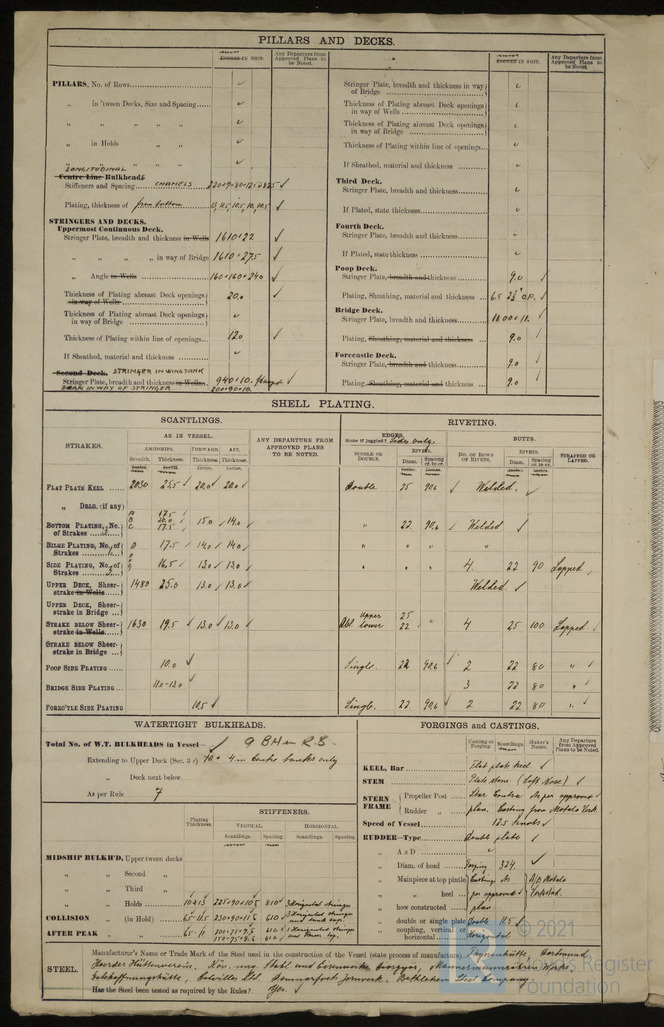 PILLARS AND DECKS.
IN SHIP.
Any Departure from Approved Plans to be Noted.
PILLARS, No. of Rows
„ in 'tween Decks, Size and Spacing
„ „ „ „ „
„ in Holds „ „
„ „ „ „
LONGITUDINAL
Centre Line Bulkheads
Stiffeners and Spacing CHANNELS
Plating, thickness of from bottom
STRINGERS AND DECKS.
Uppermost Continuous Deck.
Stringer Plate, breadth and thickness in Wells 1610 × 22
„ „ „ „ in way of Bridge 1610 × 27.5
„ Angle in Wells 160×160×24.0
Thickness of Plating abreast Deck openings in way of Wells 20.0
Thickness of Plating abreast Deck openings in way of Bridge
Thickness of Plating within line of openings 12.0
If Sheathed, material and thickness
Second Deck. STRINGER IN WING TANK
Stringer Plate, breadth and thickness in Wells 940×10. flanged
BEAM IN WAY OF STRINGER 200×90×10.
IN SHIP.
Any Departure from Approved Plans to be Noted.
Stringer Plate, breadth and thickness in way of Bridge
Thickness of Plating abreast Deck openings in way of Wells
Thickness of Plating abreast Deck openings in way of Bridge
Thickness of Plating within line of openings
If Sheathed, material and thickness
Third Deck.
Stringer Plate, breadth and thickness
If Plated, state thickness
Fourth Deck.
Stringer Plate, breadth and thickness
If Plated, state thickness
Poop Deck.
Stringer Plate, breadth and thickness 9.0
Plating, Sheathing, material and thickness 6.5 2½" O.P.
Bridge Deck.
Stringer Plate, breadth and thickness
Plating, Sheathing, material and thickness 9.0
Forecastle Deck.
Stringer Plate, breadth and thickness 9.0
Plating, Sheathing, material and thickness 9.0
SHELL PLATING.
SCANTLINGS.
RIVETING.
STRAKES.
AS IN VESSEL.
AMIDSHIPS. FORWARD. AFT.
Breadth. Thickness. Thickness. Thickness.
ANY DEPARTURE FROM APPROVED PLANS TO BE NOTED.
EDGES.
State if joggled?
SINGLE OR DOUBLE.
RIVETS.
Diam. Spacing cr. to cr.
BUTTS.
NO. OF ROWS OF RIVETS.
RIVETS.
Diam. Spacing cr. to cr.
STRAPPED OR LAPPED.
FLAT PLATE KEEL 2030 25.5 20.0 20.0 Double 25 90.6 Welded.
„ DBLG. (if any)
BOTTOM PLATING, No. of Strakes A 17.5 B 20.0 C 17.5 15.0 14.0 „ 22 90.6 Welded
BILGE PLATING, No. of Strakes D 17.5 14.0 14.0 „ „ „ „
SIDE PLATING, No. of Strakes 16.5 13.0 13.0 „ „ „ 4 22 90 Lapped
UPPER DECK, Sheerstrake in Wells 1480 25.0 13.0 13.0 Welded.
UPPER DECK, Sheerstrake in Bridge
STRAKE BELOW Sheerstrake in Wells 1630 19.5 13.0 13.0 Dbl upper lower 25 22 „ 4 25 100 Lapped
STRAKE BELOW Sheerstrake in Bridge
POOP SIDE PLATING 10.0 Single. 22 90.6 2 22 80 „
BRIDGE SIDE PLATING 11.0-13.0 3 22 80 „
FOREC'TLE SIDE PLATING 10.5 Single. 22 90.6 2 22 80 „
WATERTIGHT BULKHEADS.
Total No. of W.T. BULKHEADS in Vessel 9 BH in
Extending to Upper Deck (Sec. 3 c) 10 + 4 in centre tanks only
„ Deck next below
As per Rule 7
Plating Thickness.
STIFFENERS.
VERTICAL. HORIZONTAL.
Scantlings. Spacing. Scantlings. Spacing.
MIDSHIP BULKH'D, Upper 'tween decks
„ „ Second „
„ „ Third „
„ „ Holds 10 & 13 225×90×10.5 810 3 Horizontal stringers
COLLISION „ (in Hold) 6.5-11.5 230×90×11.5 610 3 Horizontal stringers
AFTER PEAK „ „ 6.5-11 200×75×9.5 610 1 Horizontal stringer
150×75×8.5 610
FORGINGS and CASTINGS.
Casting or Forging. Scantlings. Maker's Name. Any Departure from Approved Plans to be Noted.
KEEL, Bar Flat plate keel
STEM Plate stem (Soft Nose)
STERN FRAME Propeller Post Star Contra As per approved
Rudder „ plan. Casting from Motala Verk.
Speed of Vessel 12.5 knots
RUDDER—Type Double plate
„ A × D
„ Diam. of head Forging 324.
Mainpiece at top pintle Castings As A/B Motala
„ heel per approved Verkstad.
„ how constructed plan
„ double or single plate Double 11.5
„ coupling, vertical or horizontal Horizontal
STEEL.
Manufacturer's Name or Trade Mark of the Steel used in the construction of the Vessel (state process of manufacture). Thyssenhütte, Dortmund
Hoerder Hüttenverein,
Gutehoffnungshütte, Colvilles Ltd. Domnarfvets Jernverk. Bethlehem Steel Company
Has the Steel been tested as required by the Rules? Yes.
© 2021
Lloyd's Register
Foundation